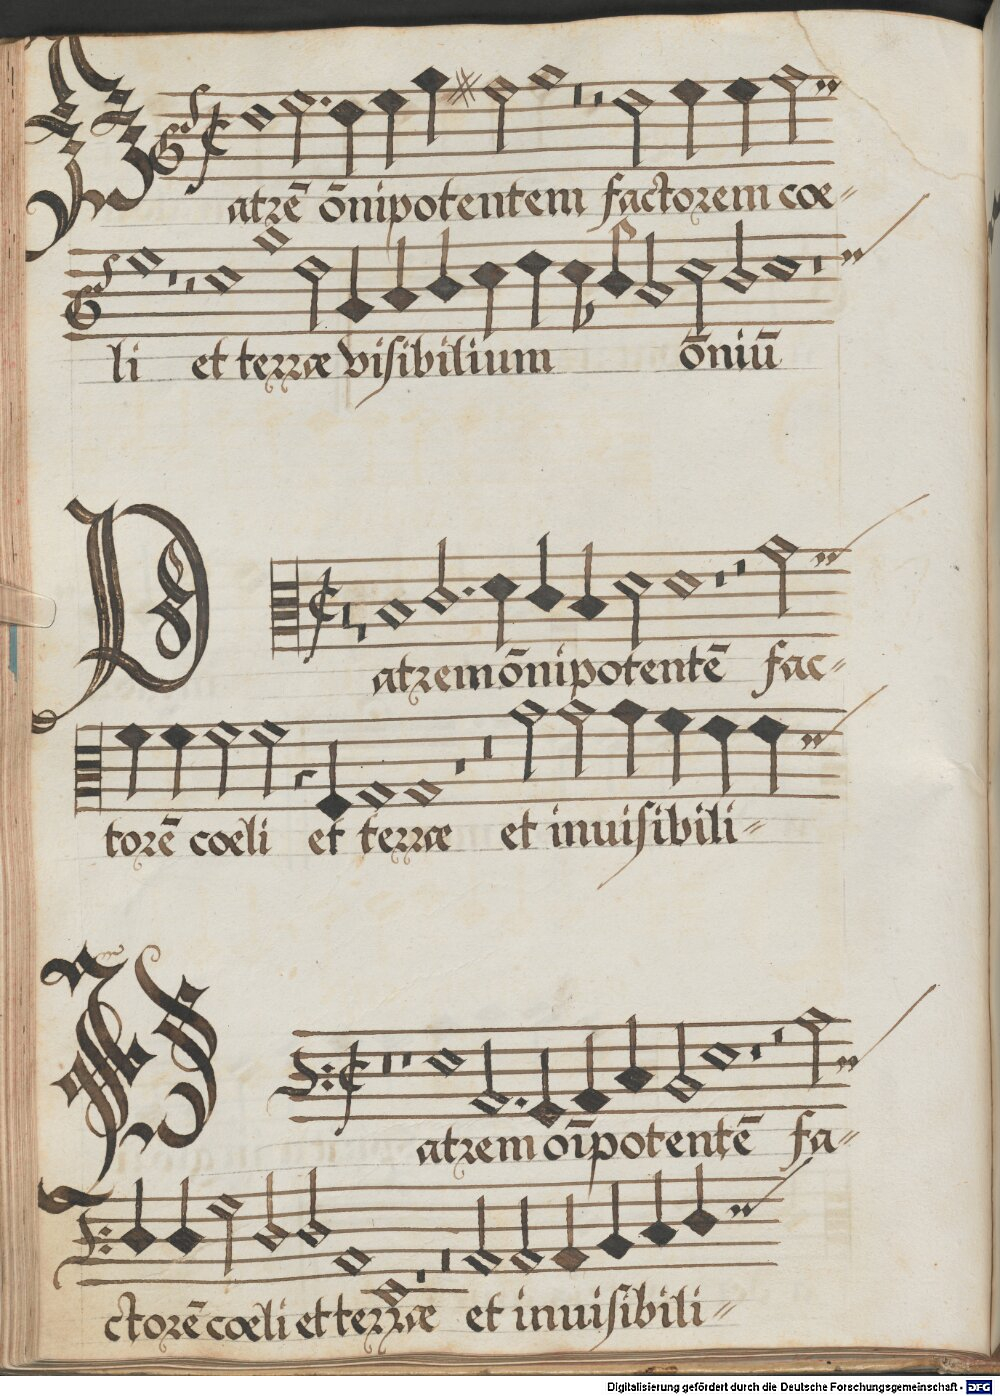 Patrē ōnipotentem factorem coe=
li et terræ visibilium ōniū
Patrem ōnipotentē fac=
torē coeli et terræ et inuisibili=
Patrem oīpotentē fa=
ctorē coeli et terræ et inuisibili=
Digitalisierung gefördert durch die Deutsche Forschungsgemeinschaft - DFG